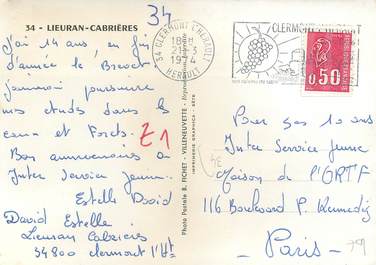 34
34 - LIEURAN-CABRIÈRES
J'ai 14 ans, en fin
d'année le Brevet
j'aimerai poursuivre
mes études dans les
eaux et Forets.
Bon anniversaire à
Inter Service Jeune.
Estelle David
David Estelle
Lieuran Cabrières
34800 Clermont l'Ht
Z1
Photo Postale B. FICHET - VILLENEUVETTE
IMPRIMERIE GRAPHICA - SÈTE
34 CLERMONT L'HERAULT
18H
21-3
1974
HERAULT
CLERMONT L'HERAULT
0,50
Pour ses 10 ans
Inter Service Jeune
Maison de l'ORTF
116 Boulevard P. Kennedy
- Paris -